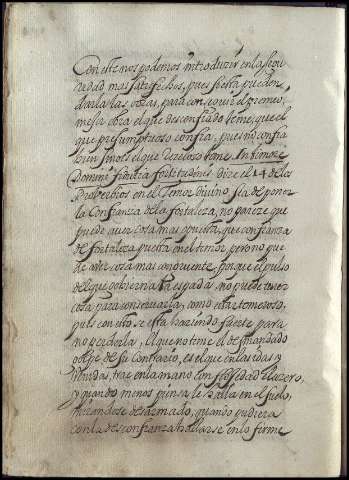 Con este nos podemos introduzir en la segu
ridad mas satisfechos, pues si esta pueden
darla las obras, para conseguir el premio,
mejor obra el que desconfiado teme, que el
que presumptuoso confia, pues no confia
bien sino es el que receloso teme. In timore
Domini fiducia fortitudinis dize el 14 de los
Proverbios en el temor Divino se a de poner
la Confianza de la fortaleza, no pareze que
puede aver cosa mas opuesta, que confianza
de fortaleza puesta en el temor pero no pue
de aver cosa mas congruente, porque el pulso
del que gobierna la espada, no puede tener
cosa para conservarla, como estar temeroso,
pues con esto se esta haziendo fuerte para
no perderla, el que no teme el desmandado
golpe de su Contrario, es el que en las idas y
venidas, trae en la mano con flogedad el azero,
y quando menos piensa le halla en el suelo,
hallandose desarmado, quando pudiera
con la desconfianza hallarse en lo firme